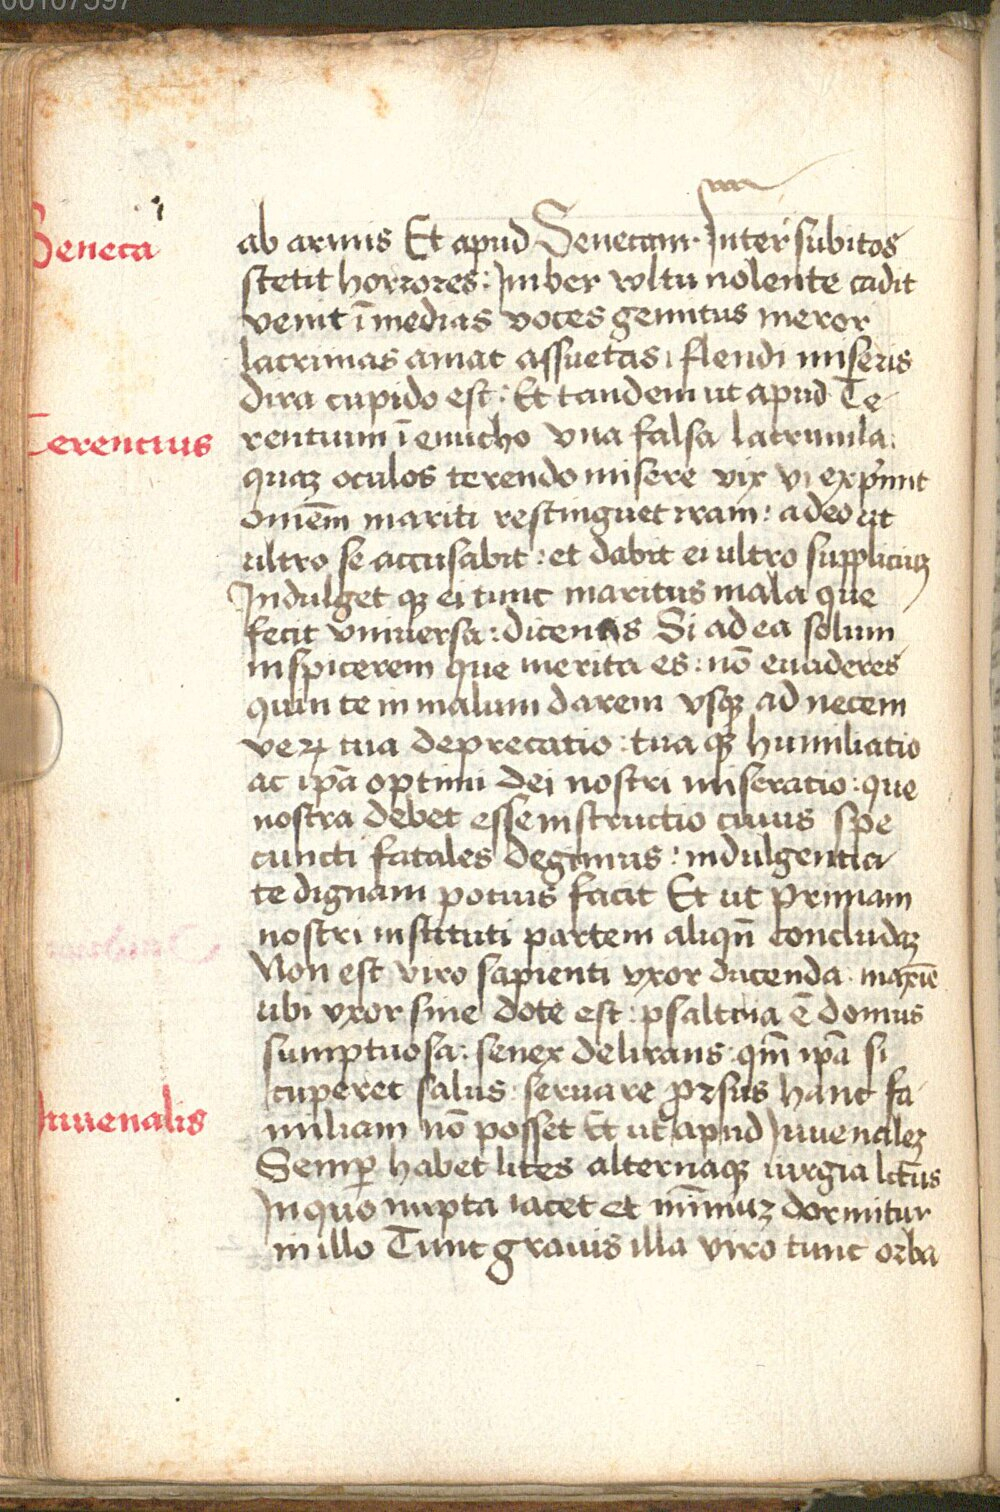 00107597
Seneca
ab armis Et apud Senecam. Inter subitos
stetit horrores: Imber vvltu nolente cadit
venit ī medias voces gemitus meror
lacrimas amat assuetas. flendi miseris
dira cupido est: Et tandem ut apud Te
Terentius
rentium ī enucho vna falsa lacrimula.
quaꝫ oculos terendo misere vix vi exp̄imit
omnē̄ mariti restinguet iram: adeo ut
ultro se accusabit: et dabit ei ultro suppliciuꝫ
Indulget qꝫ ei tunc maritus mala que
fecit vniuersa: dicens Si ad ea solum
inspicerem que merita es: nō euaderes
quin te in malum darem vsqꝫ ad necem
veꝝ tua deprecatio: tua qꝫ humiliatio
ac ip̄a optimi dei nostri miseratio: que
nostra debet esse instructio cuius spe
cuncti fatales degimus: indulgentia
te dignam potius facit Et ut primam
nostri instituti partem aliqn̄ concludaꝫ
Non est viro sapienti vxor ducenda. maxiē
ubi vxor sine dote est: psaltria ē domus
sumptuosa: senex delirans. qm̄ ip̄a si
cuperet salus seruare prorsus hanc fa
Iuuenalis
miliam nō posset Et ut apud Iuuenaleꝫ
Semp̄ habet lites alternaqꝫ iurgia lectus
In quo nupta iacet et minimuꝫ dormitur
in illo Tunc grauis illa viro tunc orba